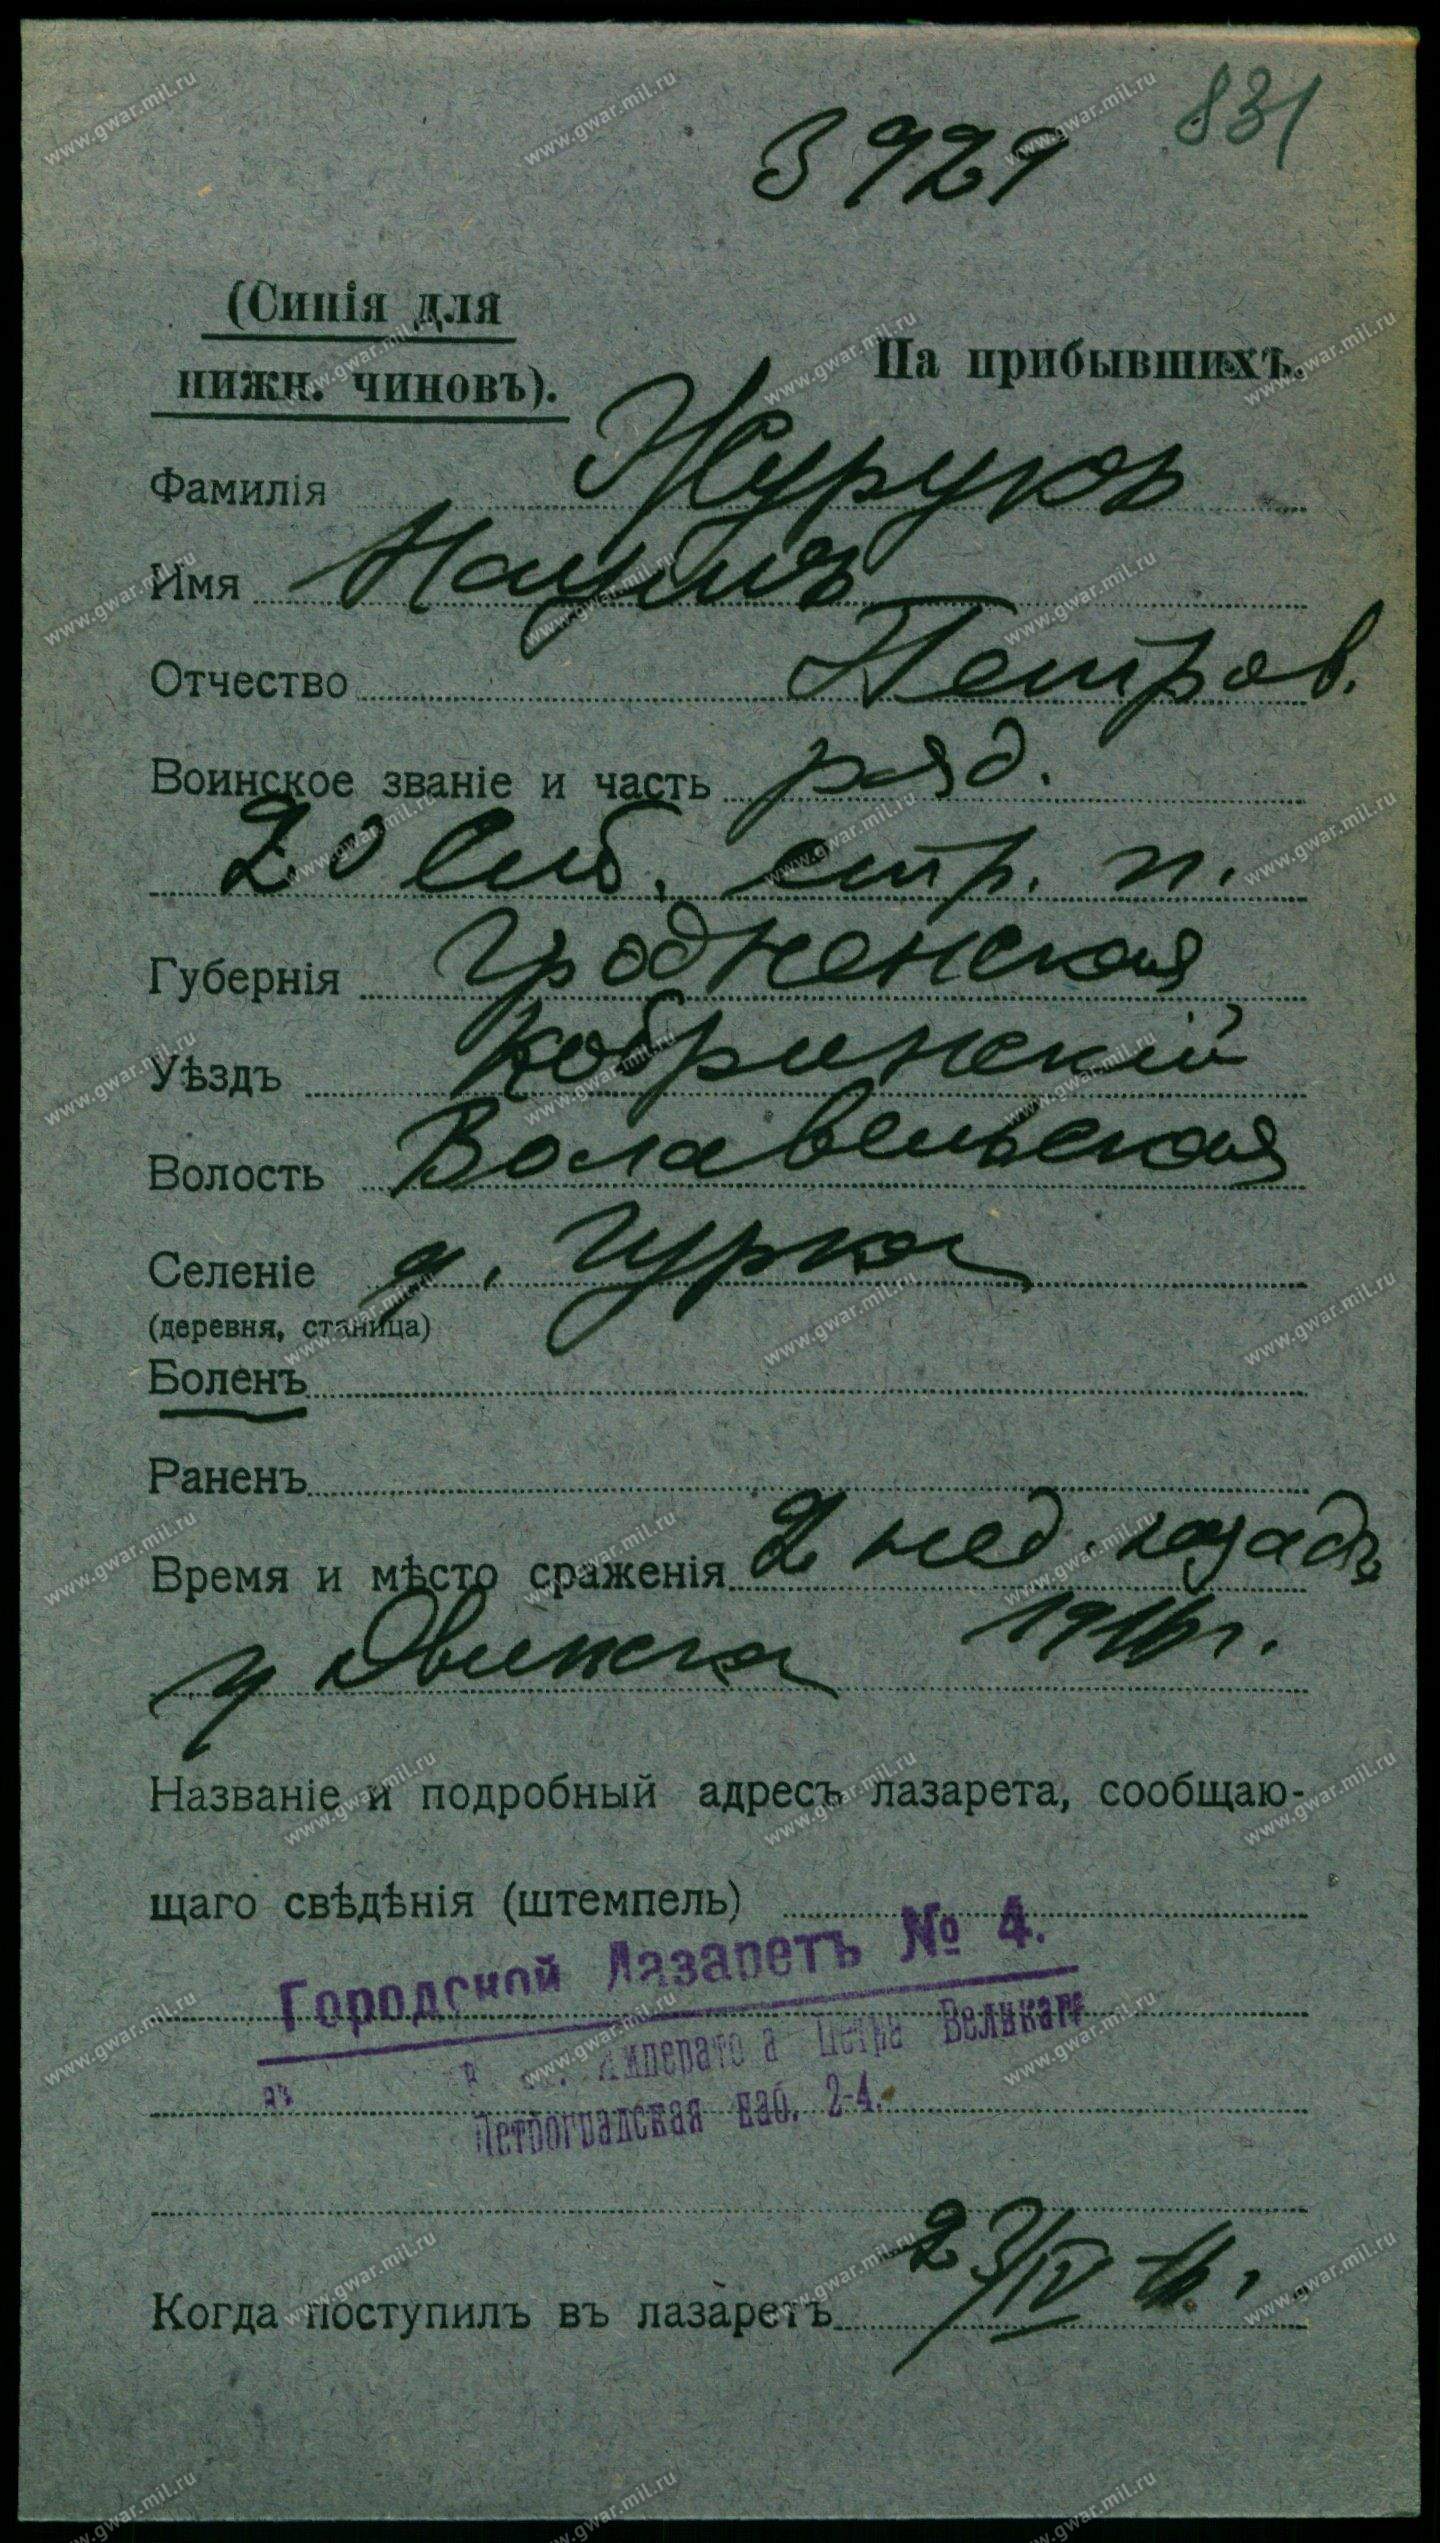 831
3929
(Синія для
нижн. чиновъ).
На прибывшихъ.
Фамилія Журукъ
Имя Наумъ
Отчество Петров.
Воинское званіе и часть ряд.
20 Сиб. стр. п.
Губернія Гродненская
Уѣздъ Кобринскій
Волость Волавельская
Селеніе д. Гурка
(деревня, станица)
Боленъ
Раненъ
Время и мѣсто сраженія 2 нед. назадъ
у Двинска 1916 г.
Названіе и подробный адресъ лазарета, сообщаю-
щаго свѣдѣнія (штемпель)
Городской Лазаретъ № 4.
Императо а Петра Великаго
Петроградская наб. 2-4.
Когда поступилъ въ лазаретъ 23/IV 16.
www.gwar.mil.ru